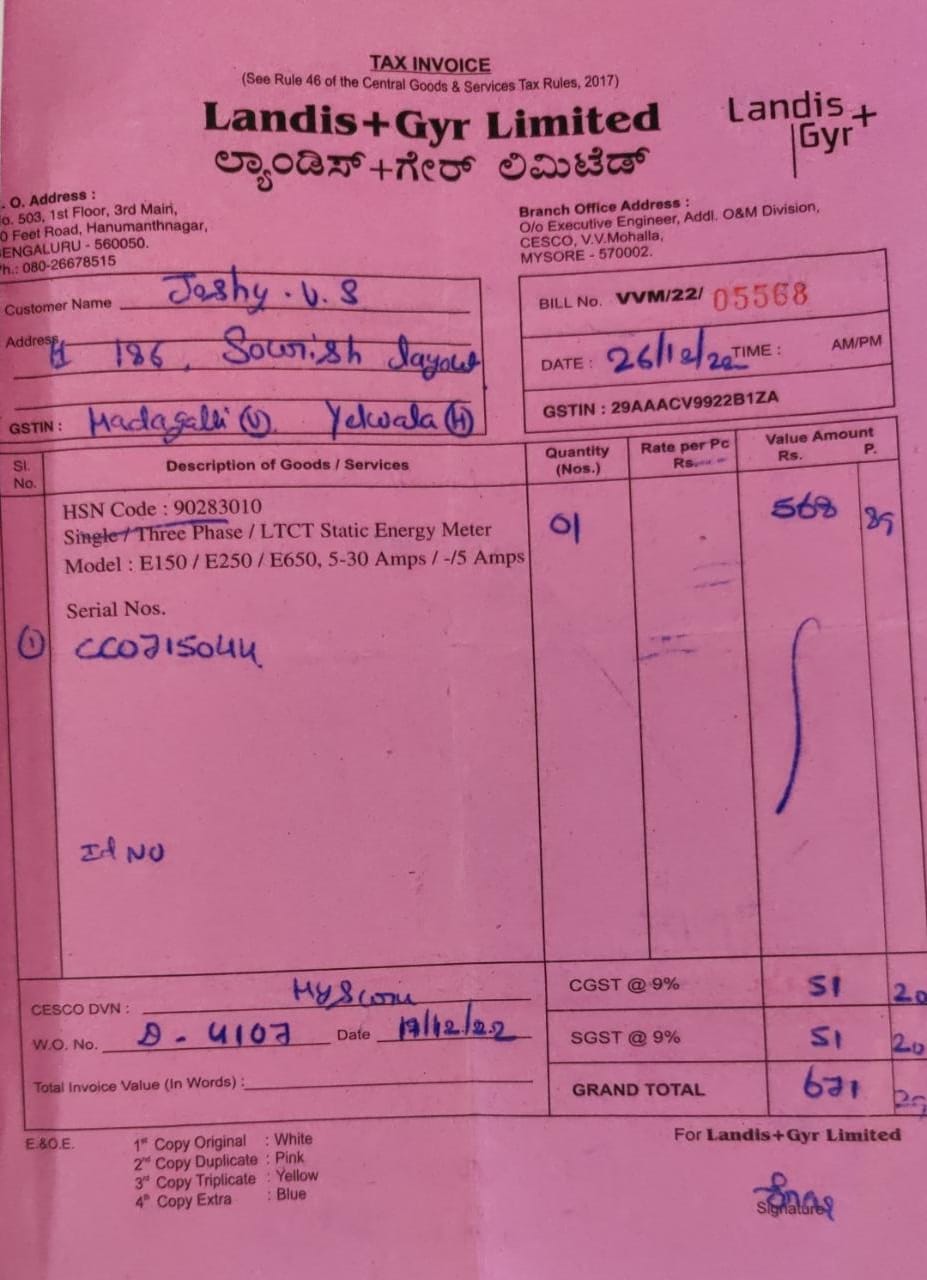 TAX INVOICE
(See Rule 46 of the Central Goods & Services Tax Rules, 2017)
Landis+Gyr Limited
ಲ್ಯಾಂಡಿಸ್+ಗೇರ್ ಲಿಮಿಟೆಡ್
Landis
Gyr+
. O. Address :
o. 503, 1st Floor, 3rd Main,
0 Feet Road, Hanumanthnagar,
BENGALURU - 560050.
Ph.: 080-26678515
Branch Office Address :
O/o Executive Engineer, Addl. O&M Division,
CESCO, V.V.Mohalla,
MYSORE - 570002.
Customer Name Jeshy . V. S
Address # 186, Sourish layout
GSTIN : Madagalli (V) Yelwala (H)
BILL No. VVM/22/ 05568
DATE : 26/12/22 TIME : AM/PM
GSTIN : 29AAACV9922B1ZA
Sl. No. Description of Goods / Services Quantity (Nos.) Rate per Pc Rs. Value Amount Rs. P.
HSN Code : 90283010
Single / Three Phase / LTCT Static Energy Meter 01 568 85
Model : E150 / E250 / E650, 5-30 Amps / -/5 Amps
Serial Nos.
① CC0715044
Id NO
CESCO DVN :
W.O. No. D - 4107 Date 19/12/22
Total Invoice Value (In Words) :
CGST @ 9% 51 20
SGST @ 9% 51 20
GRAND TOTAL 671 25
E.&O.E.
1st Copy Original : White
2nd Copy Duplicate : Pink
3rd Copy Triplicate : Yellow
4th Copy Extra : Blue
For Landis+Gyr Limited
Signature